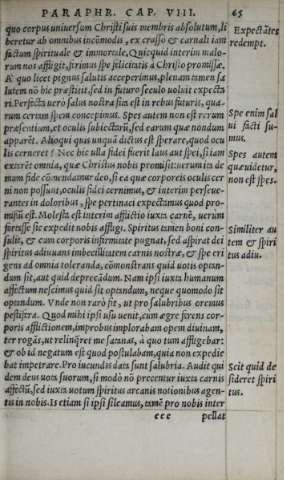 PARAPHR. CAP. VIII. 65
quo corpus universum Christi suis membris absolutum, li
beretur ab omnibus incōmodis, ex crasso & carnali iam
factum spirituale & immortale. Quicquid interim malo-
rum nos affligit, firmus spe felicitatis à Christo promissæ.
Æquo licet pignus salutis acceperimus, plenam tamen sa
lutem nō hic præstitit, sed in futuro seculo voluit expecta
ri. Perfecta verò salus nostra sita est in rebus futuris, qua-
rum certam spem concepimus. Spes autem non est rerum
præsentium, et oculis subiectarū, sed earum quæ nondum
apparēt. Alioqui quis unquā dictus est sperare, quod ocu
lis cerneret? Nec hic ulla fidei fuerit laus aut spei, si iam
exterè omnia, quæ Christus nobis promisit: verum ita de
mum fide cōmendamur deo, si ea quæ corporeis oculis cer
ni non possunt, oculis fidei cernimus, & interim perseue-
rantes in doloribus, spe pertinaci expectamus quod pro-
missū est. Molesta est interim afflictio iuxta carnē, uerùm
fortasse sic expedit nobis affligi. Spiritus tamen boni con-
sulit, & cum corporis infirmitate pugnat, sed aspirat dei
spiritus adiuuans imbecillitatem carnis nostræ, & spe eri
gens ad omnia toleranda, cōmonstrans quid uotis optan-
dum sit, aut quid deprecādum. Nam ipsi iuxta humanum
affectum nescimus quid sit optandum, neque quomodo sit
optandum. Vnde non rarò fit, ut pro salubribus oremus
pestifera. Quod mihi ipsi usu uenit, cum ægre ferens cor-
poris afflictionem, improbus implorabam opem diuinam,
ter rogās, ut relinq̄ret me satanas, à quo tum affligebar:
& ob id negatum est quod postulabam, quia non expedie
bat impetrare. Pro iucundis data sunt salubria. Audit qui
dem deus uota suorum, si modò nō precentur iuxta carnis
affectū, sed iuxta uotum spiritus arcanis notionibus agen-
tis in nobis. Is etiam si ipsi sileamus, tamē pro nobis inter
eee pellat
Expectātes
redempt.
Spe enim sal
ui facti su-
mus.
Spes autem
quæ uidetur,
non est spes.
Similiter au
tem & spiri
tus adiu.
Scit quid de
sideret spiri
tus.